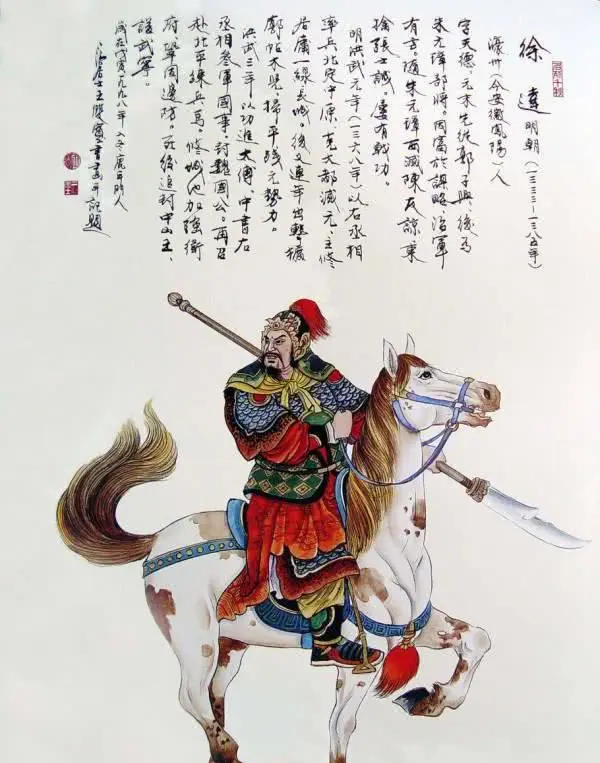 徐達 明朝(一三三二—一三八五年)
濠州(今安徽鳳陽)人
字天德,元末先從郭子興,後為
朱元璋部將。因富於謀略,治軍
有方。随朱元璋西滅陳友諒,東
擒張士誠,屢有戰功。
明洪武元年(一三六八年)以右丞相
率兵北定中原,克大都滅元。主修
居庸一線長城。後又連年出擊擴
廓帖木兒,掃平殘元勢力。
洪武三年以功進太傅,中書右
丞相參軍國事,封魏國公。再召
赴北平練兵馬。修城池加強衛
府鞏固邊防。死後追封中山王、
諡武寧。
歲在戊寅一九九八年入冬
居士王雙寬書畫并記題